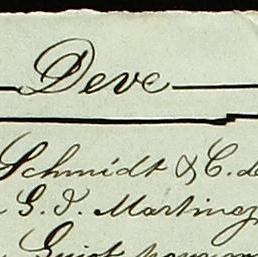 Deve
Schmidt & C.
G. P. Martinez
Guiot